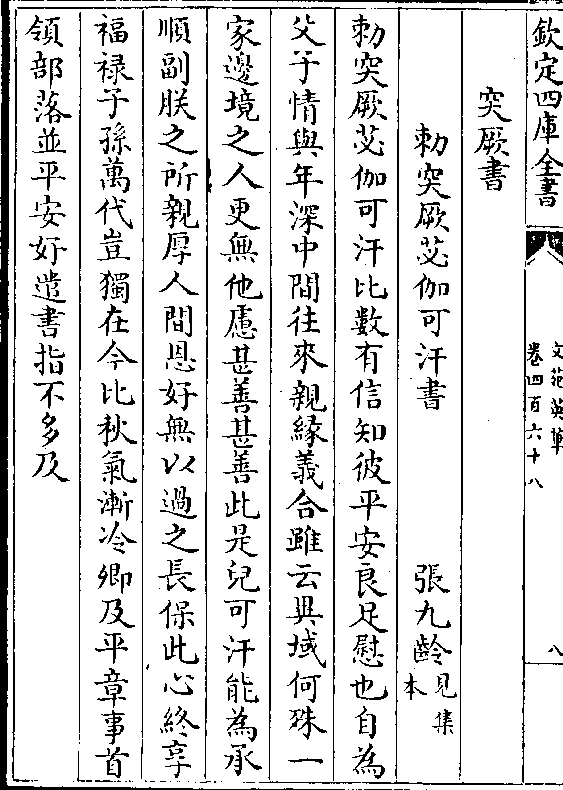 欽定四庫全書
文苑英華
卷四百六十八
八
突厥書
勅突厥苾伽可汗書
張九齡見集本
勅突厥苾伽可汗比數有信知彼平安良足慰也自為
父子情與年深中間往來親緣義合雖云異域何殊一
家邊境之人更無他慮甚善甚善此是兒可汗能為承
順副朕之所親厚人間恩好無以過之長保此心終享
福祿子孫萬代豈獨在今比秋氣漸冷卿及平章事首
領部落並平安好遣書指不多及